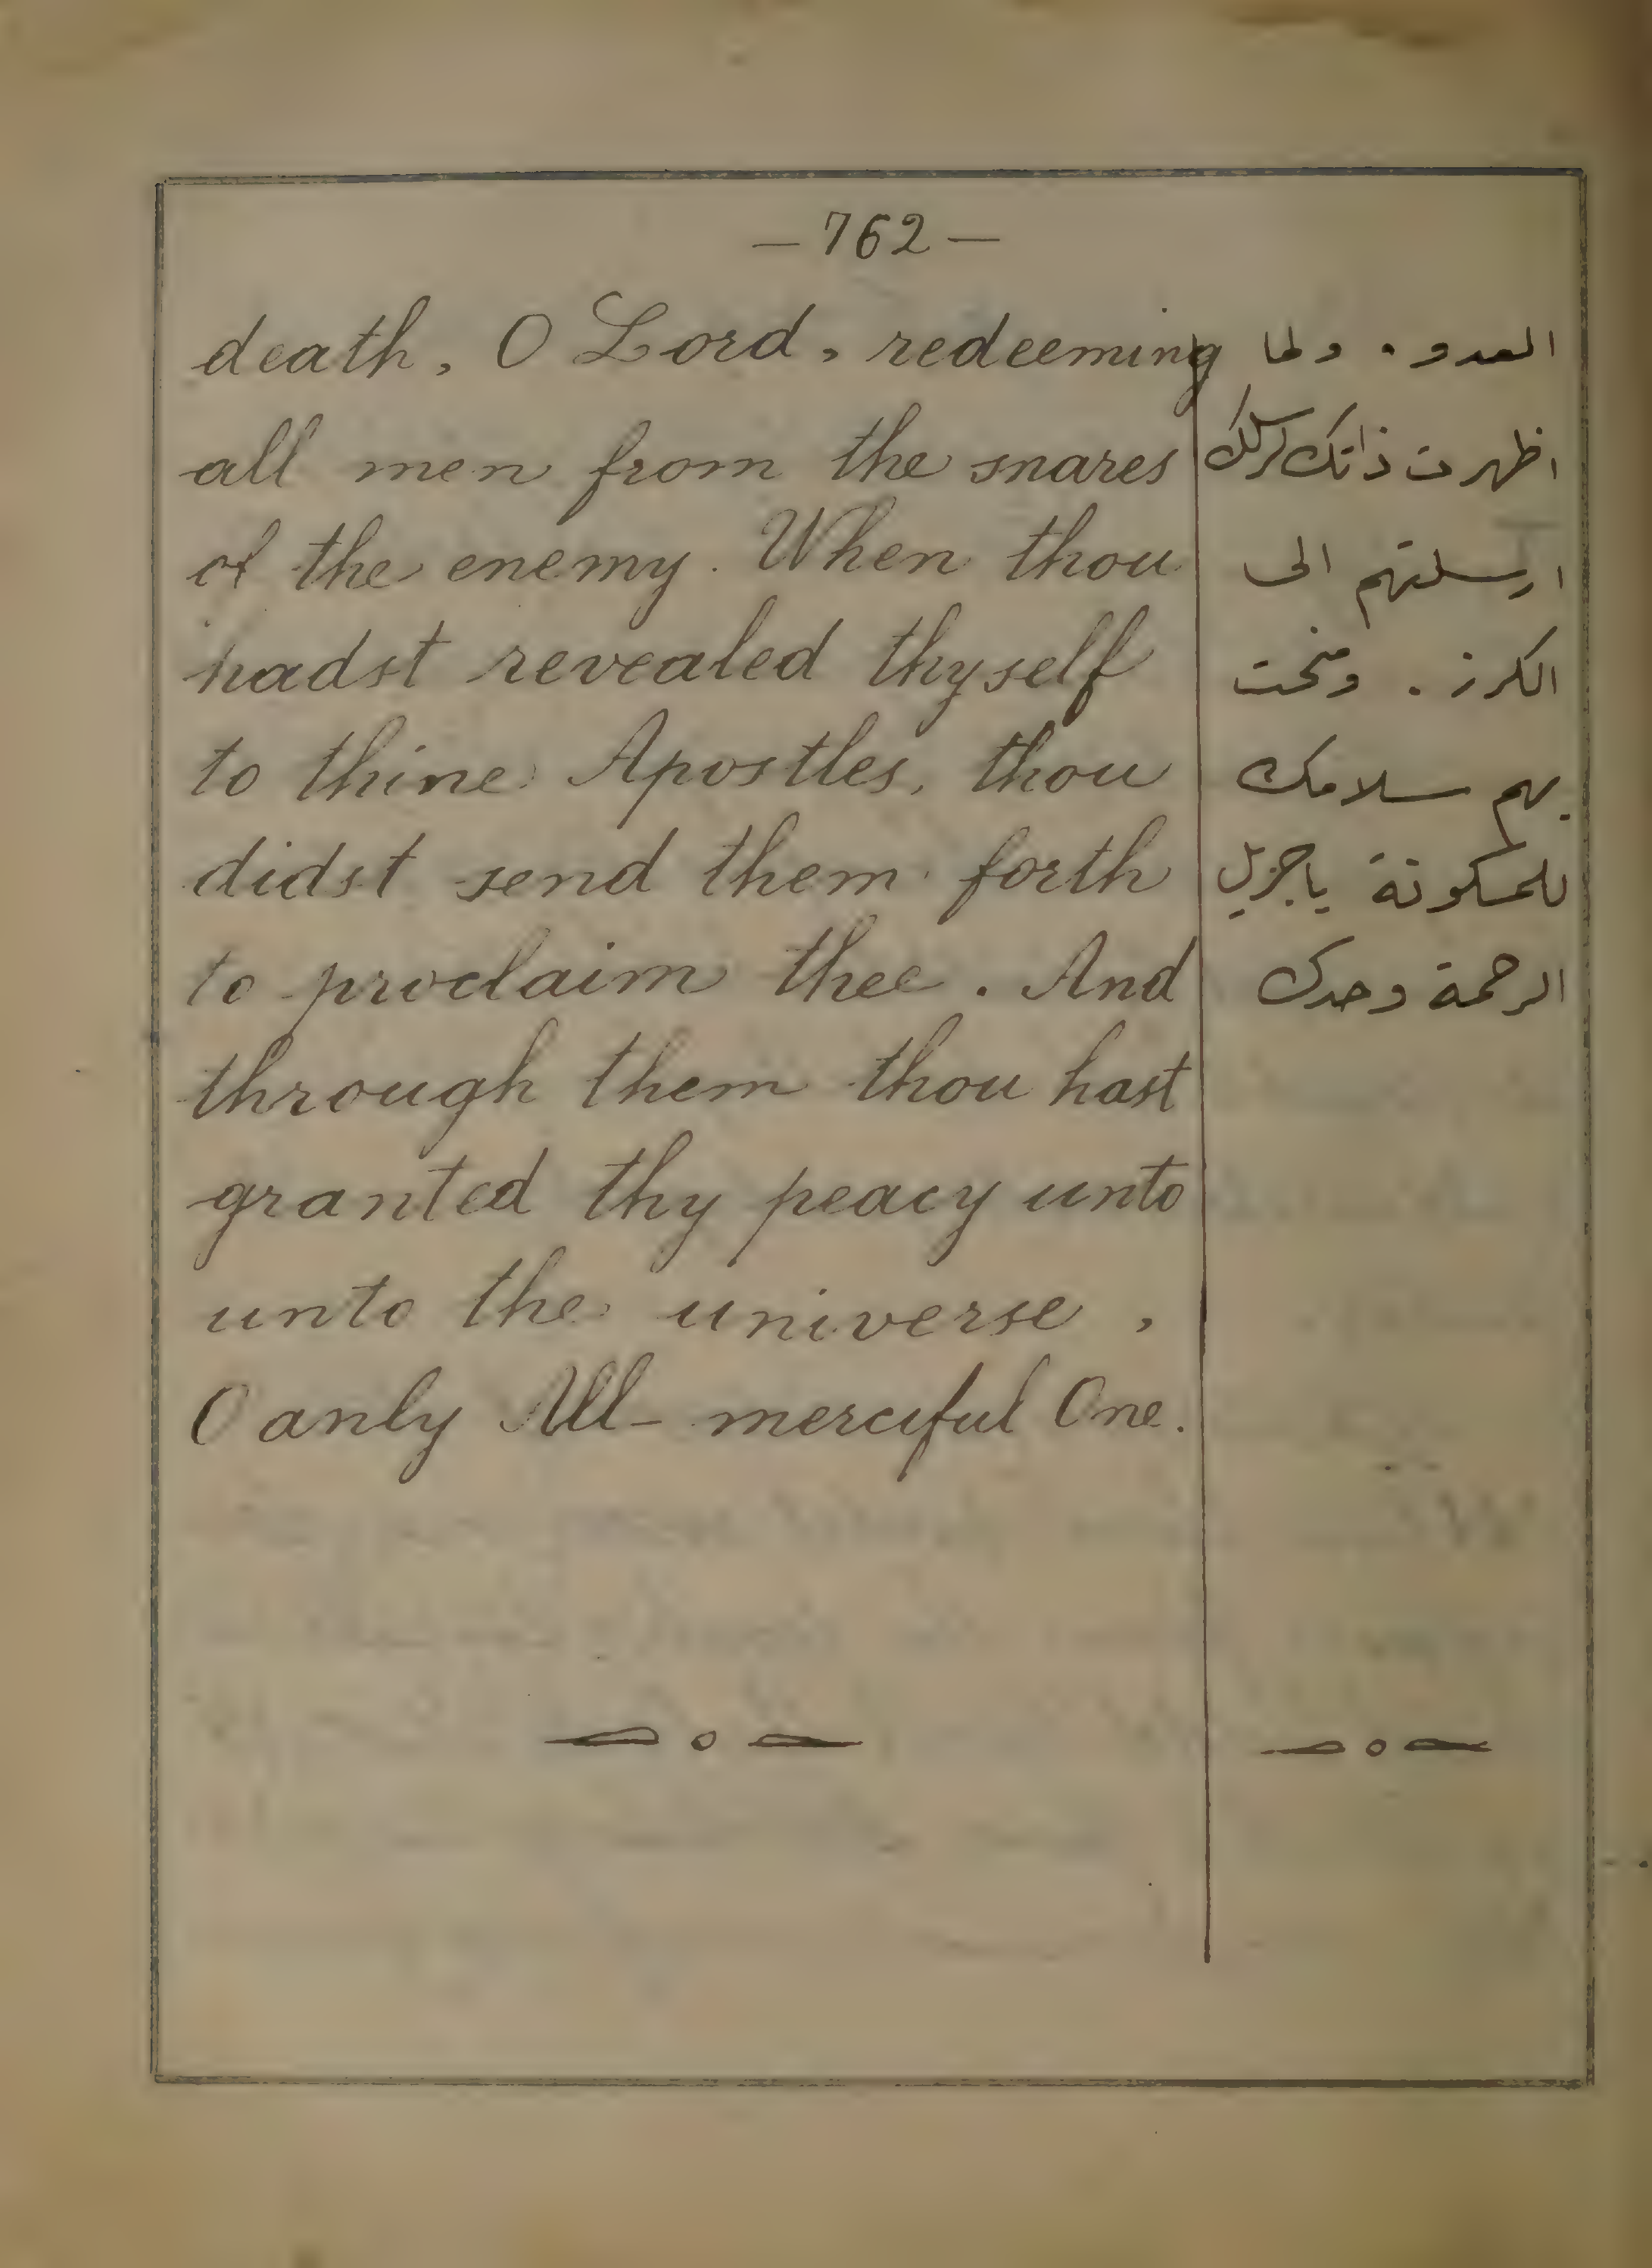 — 762 —
death, O Lord, redeeming
all men from the snares
of the enemy. When thou
hadst revealed thyself
to thine Apostles, thou
didst send them forth
to proclaim thee. And
through them thou hast
granted thy peacy unto
unto the universe,
O anly All-merciful One.
العدو. ولما
اظهرت ذاتك لرسلك
ارسلتهم الى
الكرز. ومنحت
بهم سلامك
للمسكونة ياجزيل
الرحمة وحدك